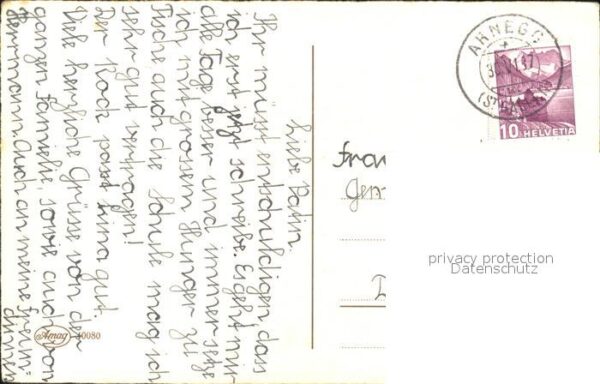 Liebe Patin
Ihr müsst entschuldigen dass
ich erst jetzt schreibe. Es geht mir
alle Tage besser und immer setze
ich mit grossem Hunger zu
Tische auch die Schule mag ich
sehr gut vertragen!
Der Rock passt prima gut.
Viele herzliche Grüsse von der
ganzen Familie, sowie auch von
Herrmann Auch an meine Freun-
dinnen
Amag 10080
ARNEGG
(ST. GALLEN)
10 HELVETIA
Frau
privacy protection
Datenschutz